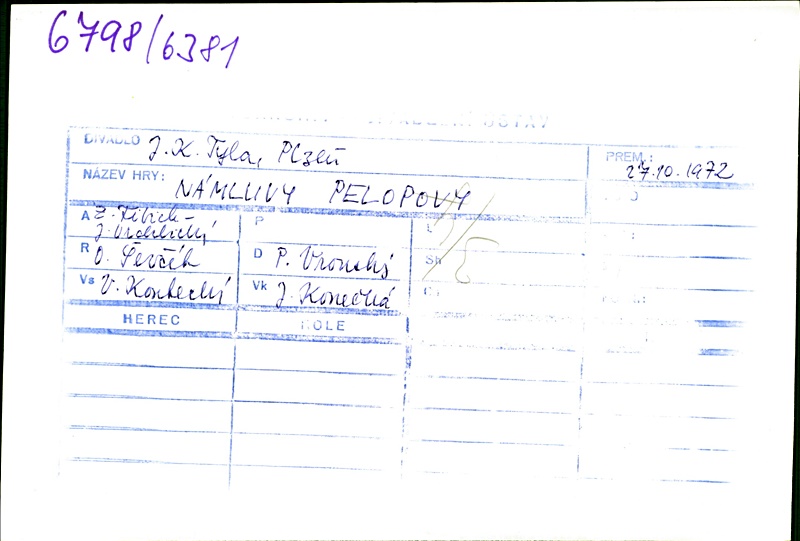 6798/6381
DIVADELNÍ ÚSTAV
DIVADLO J. K. Tyla, Plzeň
PREM.: 27.10.1972
NÁZEV HRY: NÁMLUVY PELOPOVY
A Z. Fibich-
J. Vrchlický
P
R O. Ševčík
D P. Vronský
Vs V.
Vk J. Konečná
HEREC
ROLE